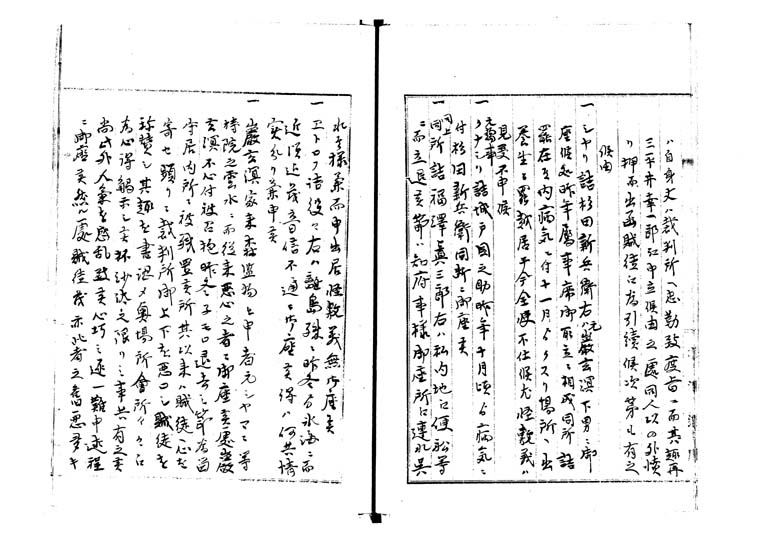 ハ自身又ハ裁判所ヘ忘勤致度旨ニ而其趣再
三平井幸一郎江申立候由之處同人以の外憤
り押而出函賊徒江為引續候次第も有之
候由
一 シヤリ詰杉田新兵衛右ハ元巌玄溟下男ニ御
座候処昨年属事席御取立ニ相成同所詰
罷在候内病氣ニ付十一月よりクスリ場所ヘ出
養生ニ罷越居于今全快不仕候尤怪敷義ハ
見受不申候
元属事
一 クナシリ詰城戸周之助昨年十月頃より病氣ニ
付杉田新兵衛同断ニ御座候
同上
一 同所詰福澤眞三郎右ハ私内地江便船等
ニ而立退候節ハ知府事様御座所江連れ呉
れ候様兼而申出居怪敷義無御座候
一 ヱトロフ詰役々右ハ離島殊ニ昨冬より氷海ニ而
近頃迄萬音信不通ニ御座候得ハ何共情
実分り兼申候
一 巌玄溟家来森監物と申者元シヤマニ等
持院之雲水ニ而従来悪心之者ニ御座候處巌
玄溟不心付被召抱昨冬子モロ退去之節為留
守居内所ニ被殘置候所其以来ハ賊徒ヘ心を
寄せ頻りニ裁判所御上下を悪口し賊徒を
称賛し其趣を書認メ奥場所會所々々江
為心得觸示し候抔沙汰之限りニ事共有之候
尚此外人氣を惑乱致候心巧ニ逐一難申述程
ニ御座候然ル處賊徒共亦此者之舊悪多キ